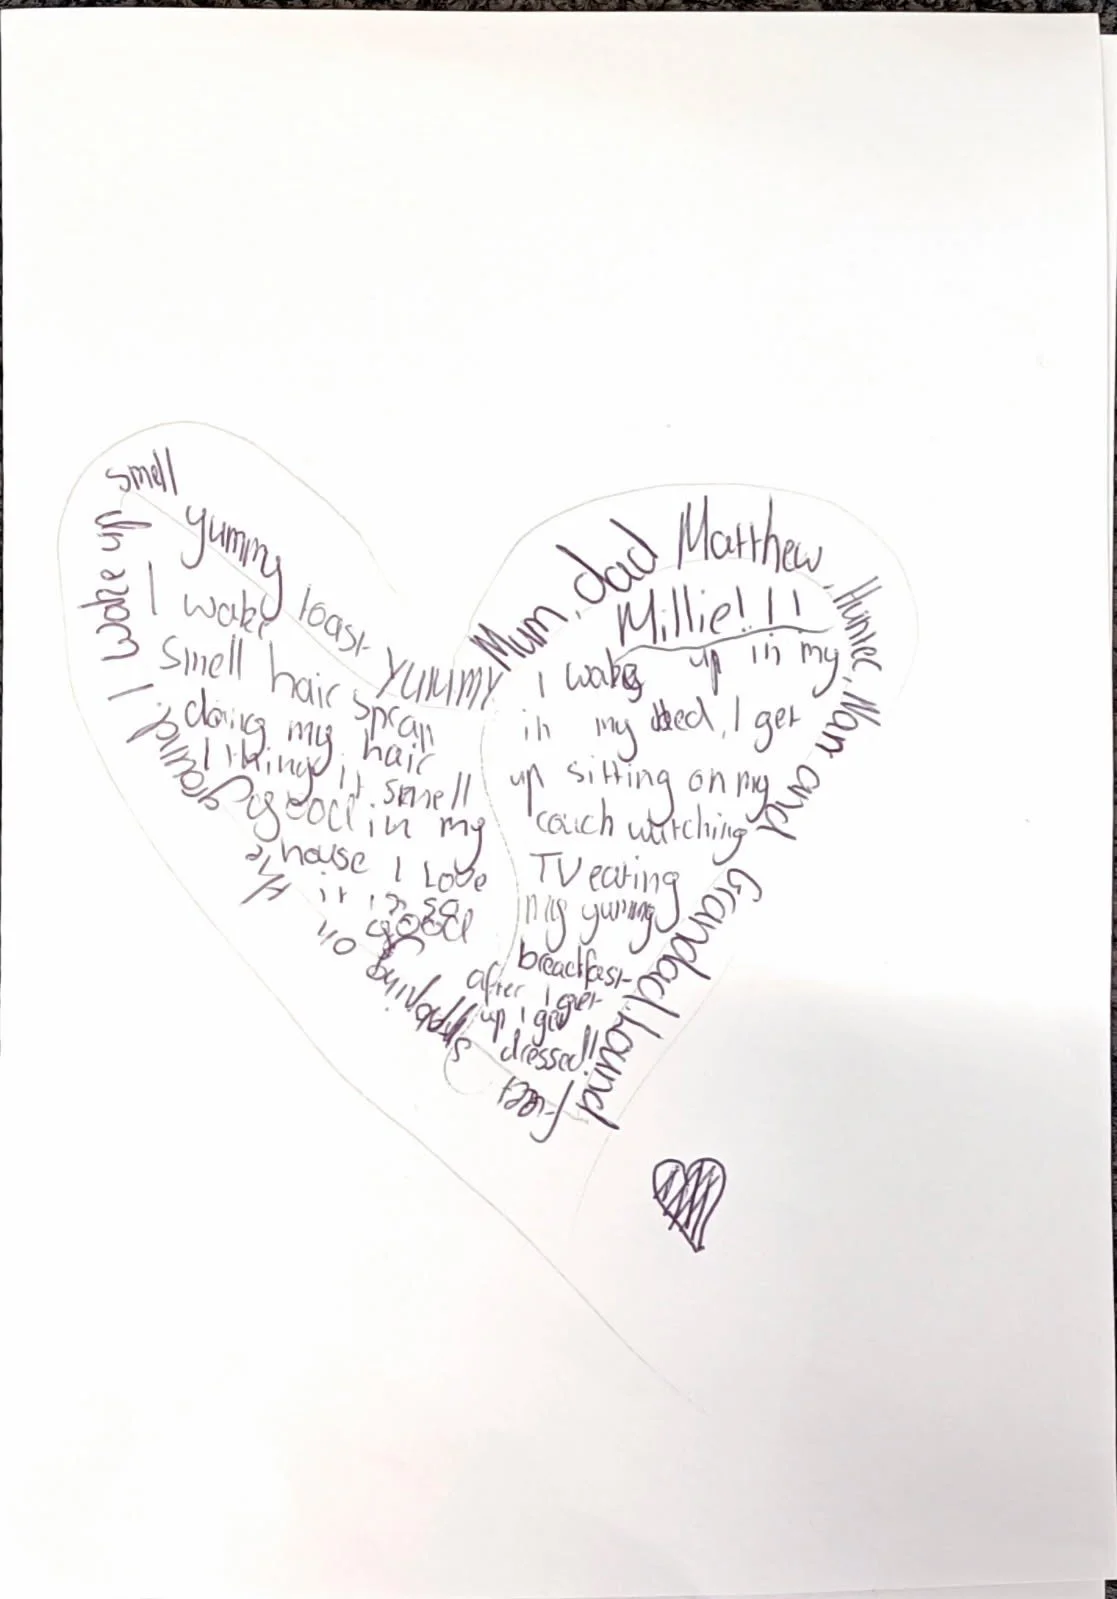 I wake up
smell
yummy
toast
YUMMY
Mum, dad Matthew, Hunter, Nan and Grandad. I aund
feet
slapping
on
the
ground.
I wake
smell hair spray
doing my hair
I thing it smell
good in my
house I Love
it is so
good
Millie!!!
I wake up in my
in my bed, I get
up sitting on my
couch watching
TV eating
my yummy
breackfast
after I get
up I get
dressed!!